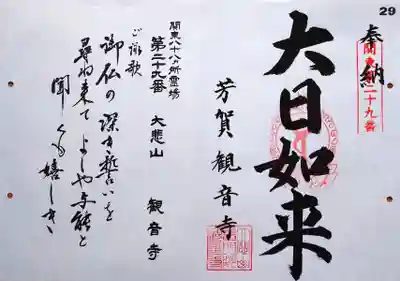 29
奉納
関東第二十九番
大日如来
芳賀観音寺
関東八十八ヵ所霊場
第二十九番 大悲山 観音寺
ご詠歌
御仏の深き誓いを
尋ね来て よしや与能と
聞くも嬉しき